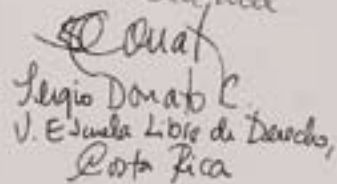 Sergio Donato C.
U. Escuela Libre de Derecho,
Costa Rica